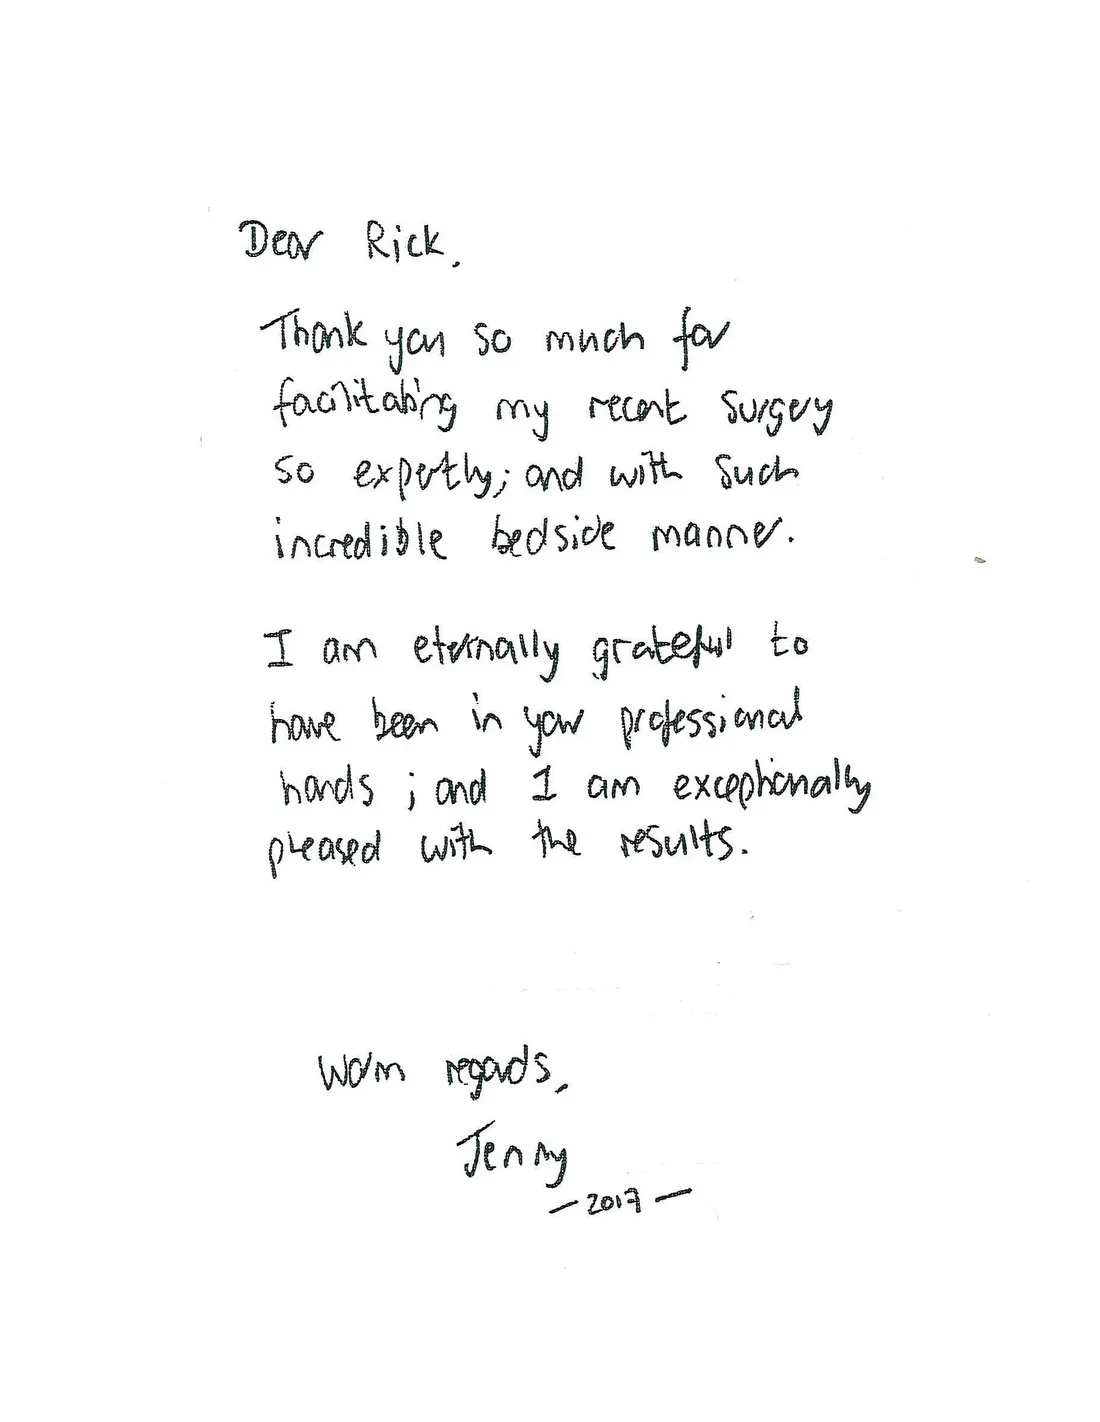 Dear Rick,
Thank you so much for
facilitating my recent surgery
so expertly; and with such
incredible bedside manner.
I am eternally grateful to
have been in your professional
hands ; and I am exceptionally
pleased with the results.
Warm regards,
Jenny
- 2017 -